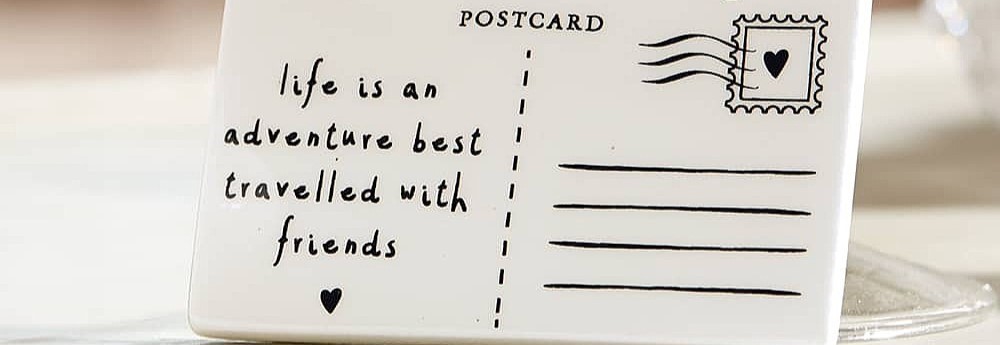 POSTCARD
life is an
adventure best
travelled with
friends